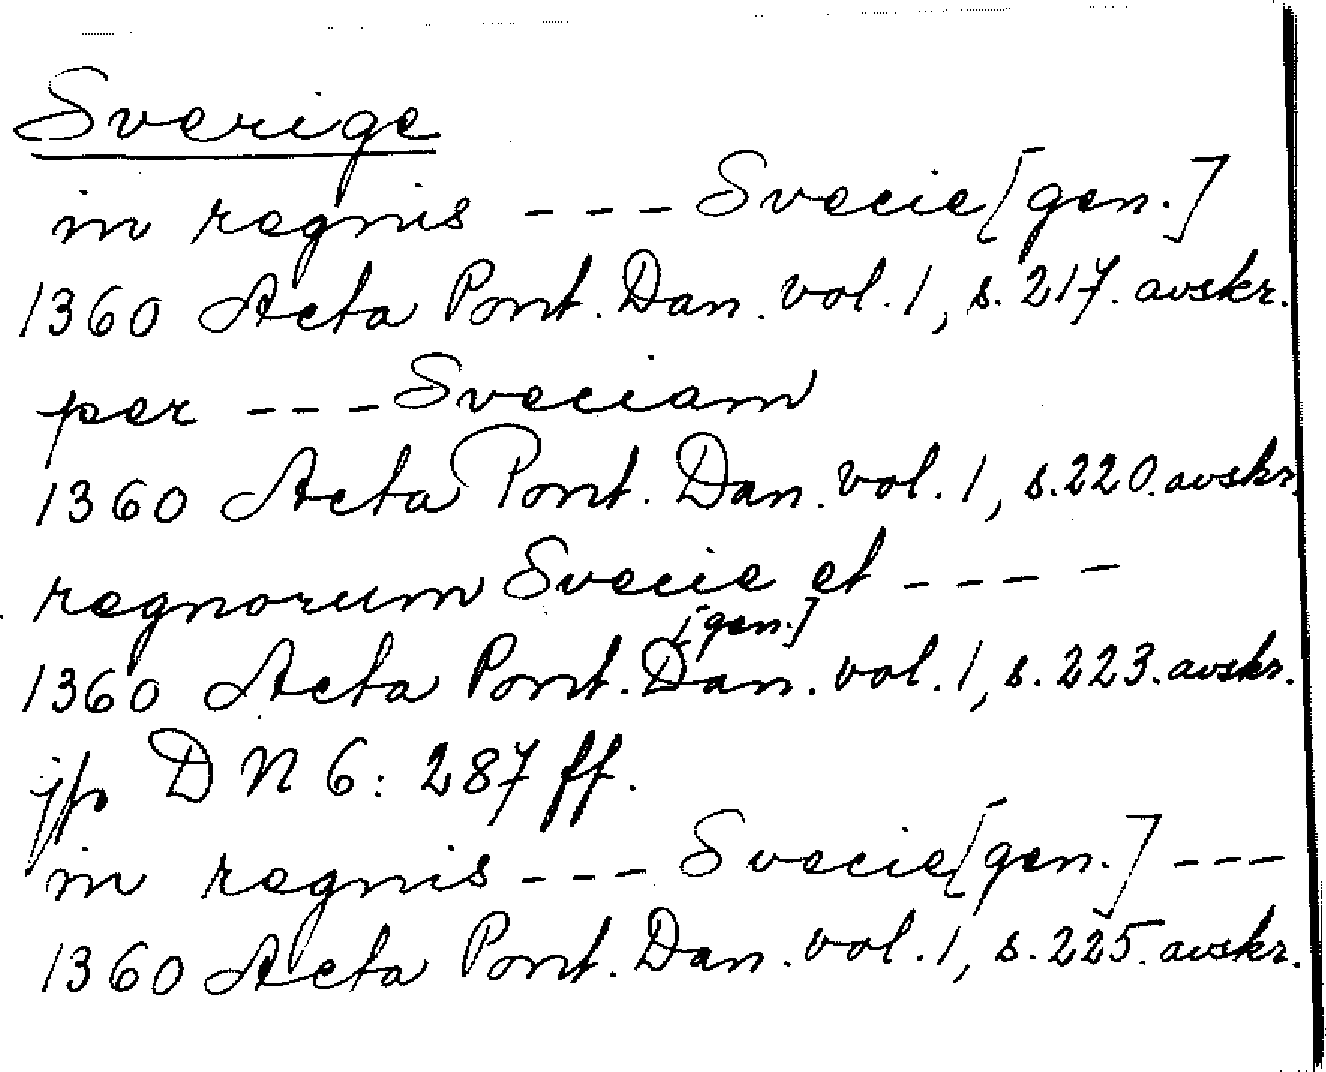 Sverige
in regnis - - - Svecie [gen.]
1360 Acta Pont. Dan. vol. 1, s. 217. avskr.
per - - - Sveciam
1360 Acta Pont. Dan. vol. 1, s. 220. avskr.
regnorum Svecie et - - - -
[gen.]
1360 Acta Pont. Dan. vol. 1, s. 223. avskr.
jfr DN 6: 287 ff.
in regnis - - - Svecie [gen.] - - -
1360 Acta Pont. Dan. vol. 1, s. 225. avskr.